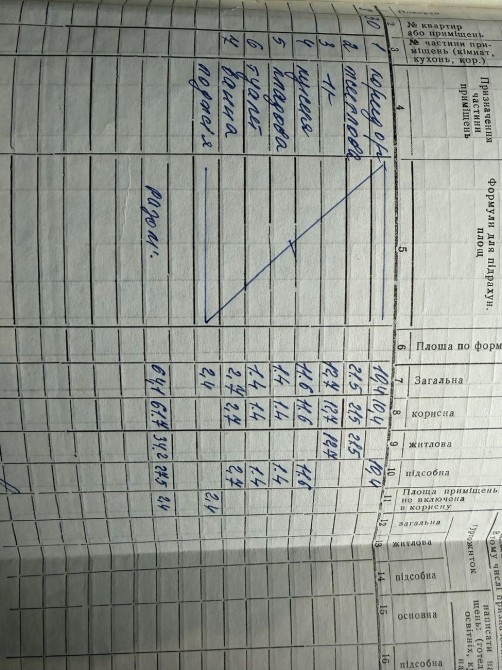 № квартир або приміщень
№ частини приміщень (кімнат, кухонь, кор.)
Призначення частини приміщень
Формули для підрахун. площ
Площа по форм
Загальна
корисна
житлова
підсобна
Площа приміщень не включена в корисну
загальна
житлова
підсобна
основна
2 3 4 5 6 7 8 9 10 11 12 13 14 15 16
30 1 коридор 10,4 10,4 10,4
2 житлова 21.5 21.5 21.5
3 -"- 12,7 12,7 12,7
4 кухня 11.6 11.6 11.6
5 кладова 1.4 1.4 1.4
6 туалет 1.4 1.4 1.4
7 ванна 2,7 2,7 2,7
2,4 2,4
разом: 64,1 61,7 34,2 27,5 2,4